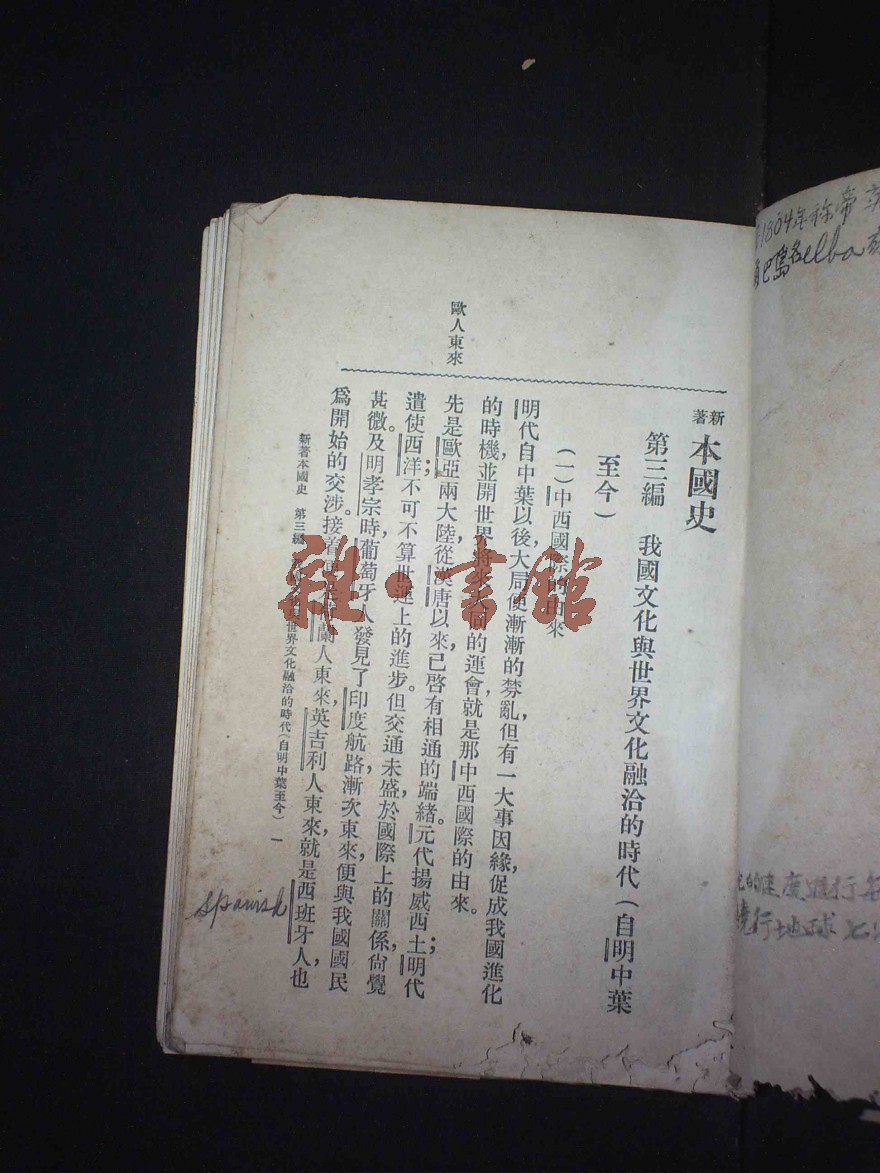 新著 本國史
第三編 我國文化與世界文化融洽的時代（自明中葉
至今）
（一）中西國際的由來
明代自中葉以後，大局便漸漸的棼亂，但有一大事因緣，促成我國進化
的時機，並開世界將來大同的運會，就是那中西國際的由來。
歐人東來
先是歐亞兩大陸從漢唐以來，已啓有相通的端緒。元代揚威西土；明代
遣使西洋；不可不算世運上的進步。但交通未盛，於國際上的關係，尙覺
甚微。及明孝宗時，葡萄牙人發見了印度航路，漸次東來，便與我國國民
爲開始的交涉。接着 蘭人東來，英吉利人東來，就是西班牙人，也
新著本國史 第三編 世界文化融洽的時代（自明中葉至今） 一
spanish
1804年称帝
巴島名elba
的速度進行每
繞行地球七
雜·書館